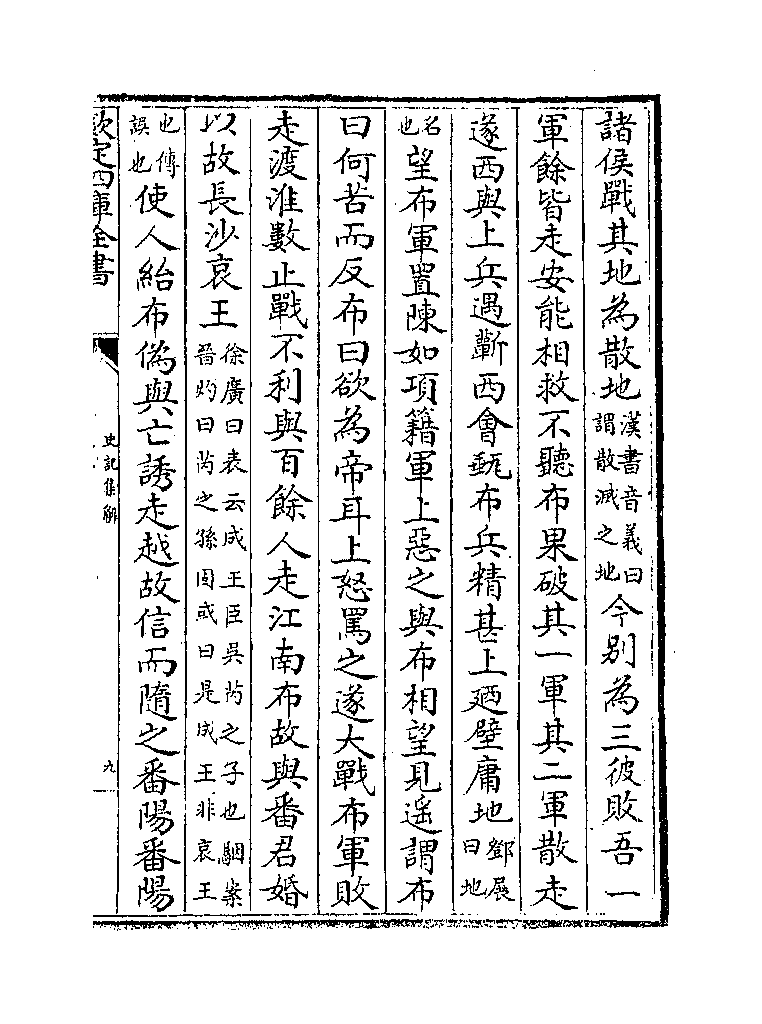 諸侯戰其地為散地漢書音義曰謂散滅之地今别為三彼敗吾一
軍餘皆走安能相救不聽布果破其一軍其二軍散走
遂西與上兵遇蘄西會甀布兵精甚上廼壁庸地鄧展曰地
名也望布軍置陳如項籍軍上惡之與布相望見遥謂布
曰何苦而反布曰欲為帝耳上怒罵之遂大戰布軍敗
走渡淮數止戰不利與百餘人走江南布故與番君婚
以故長沙哀王徐廣曰表云成王臣吳芮之子也駰案晉灼曰芮之孫固或曰是成王非哀王
也傳誤也使人紿布偽與亡誘走越故信而隨之番陽番陽
欽定四庫全書
史記集解
九